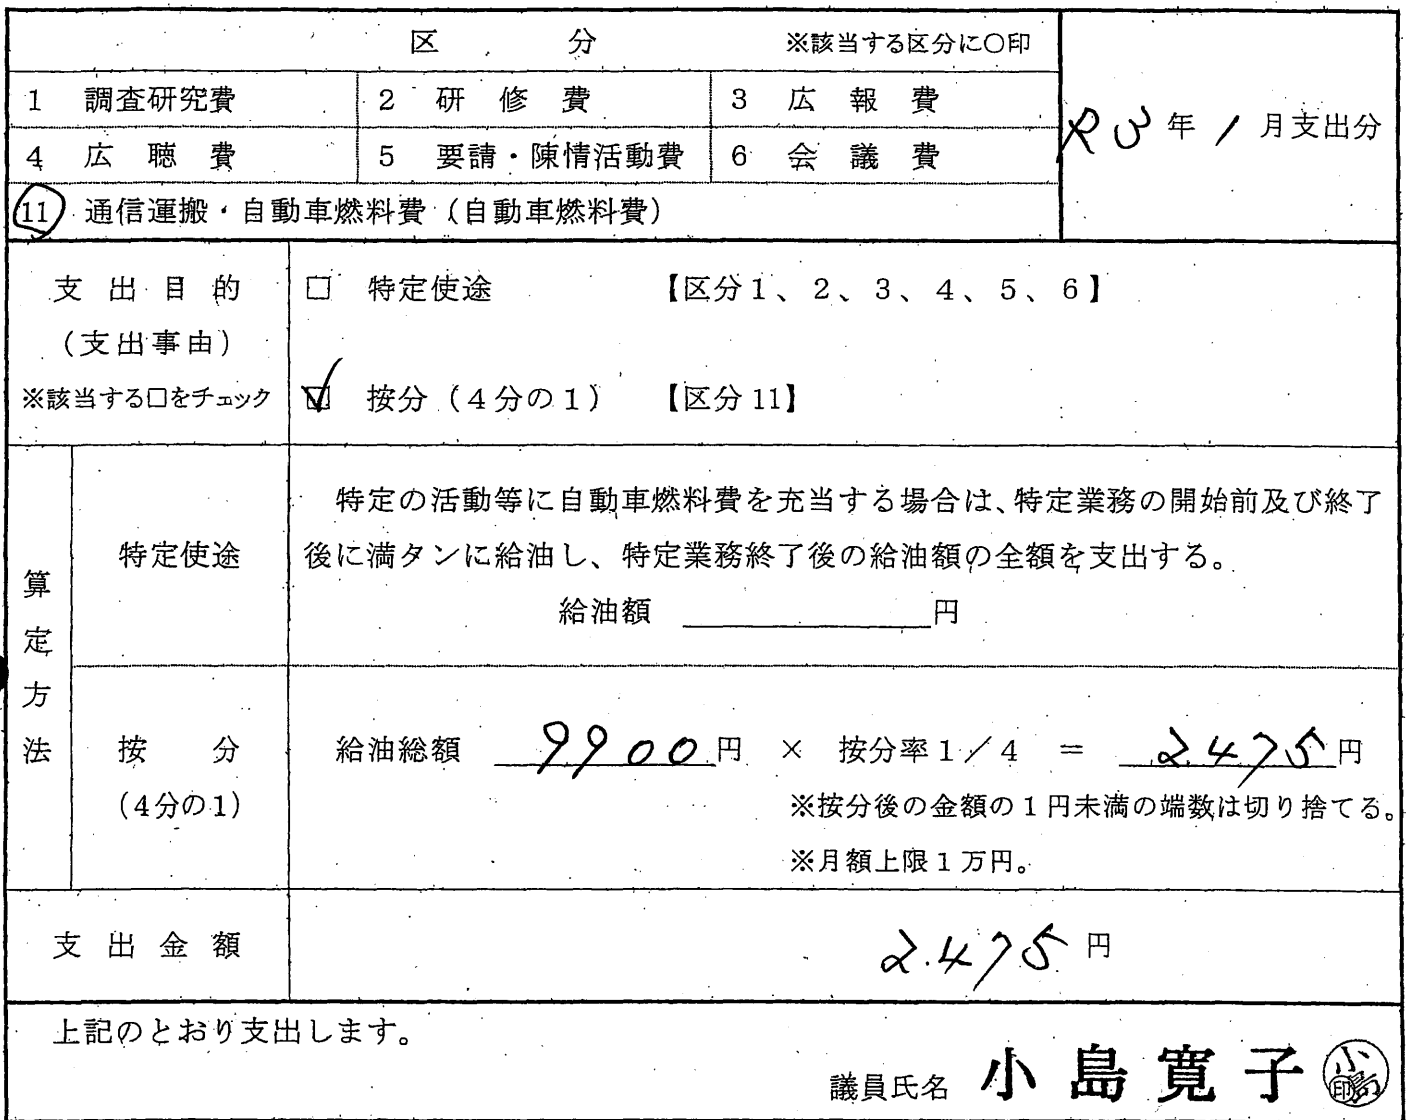 区 分 ※該当する区分に○印
1 調査研究費 2 研修費 3 広報費
R3年1月支出分
4 広聴費 5 要請・陳情活動費 6 会議費
11 通信運搬・自動車燃料費（自動車燃料費）
支出目的 □ 特定使途 【区分1、2、3、4、5、6】
（支出事由）
※該当する□をチェック ☑ 按分（4分の1） 【区分11】
算定方法
特定使途
特定の活動等に自動車燃料費を充当する場合は、特定業務の開始前及び終了
後に満タンに給油し、特定業務終了後の給油額の全額を支出する。
給油額 円
按分 給油総額 9900円 × 按分率1／4 ＝ 2.475円
（4分の1） ※按分後の金額の1円未満の端数は切り捨てる。
※月額上限1万円。
支出金額 2.475円
上記のとおり支出します。
議員氏名 小島寛子 小島印